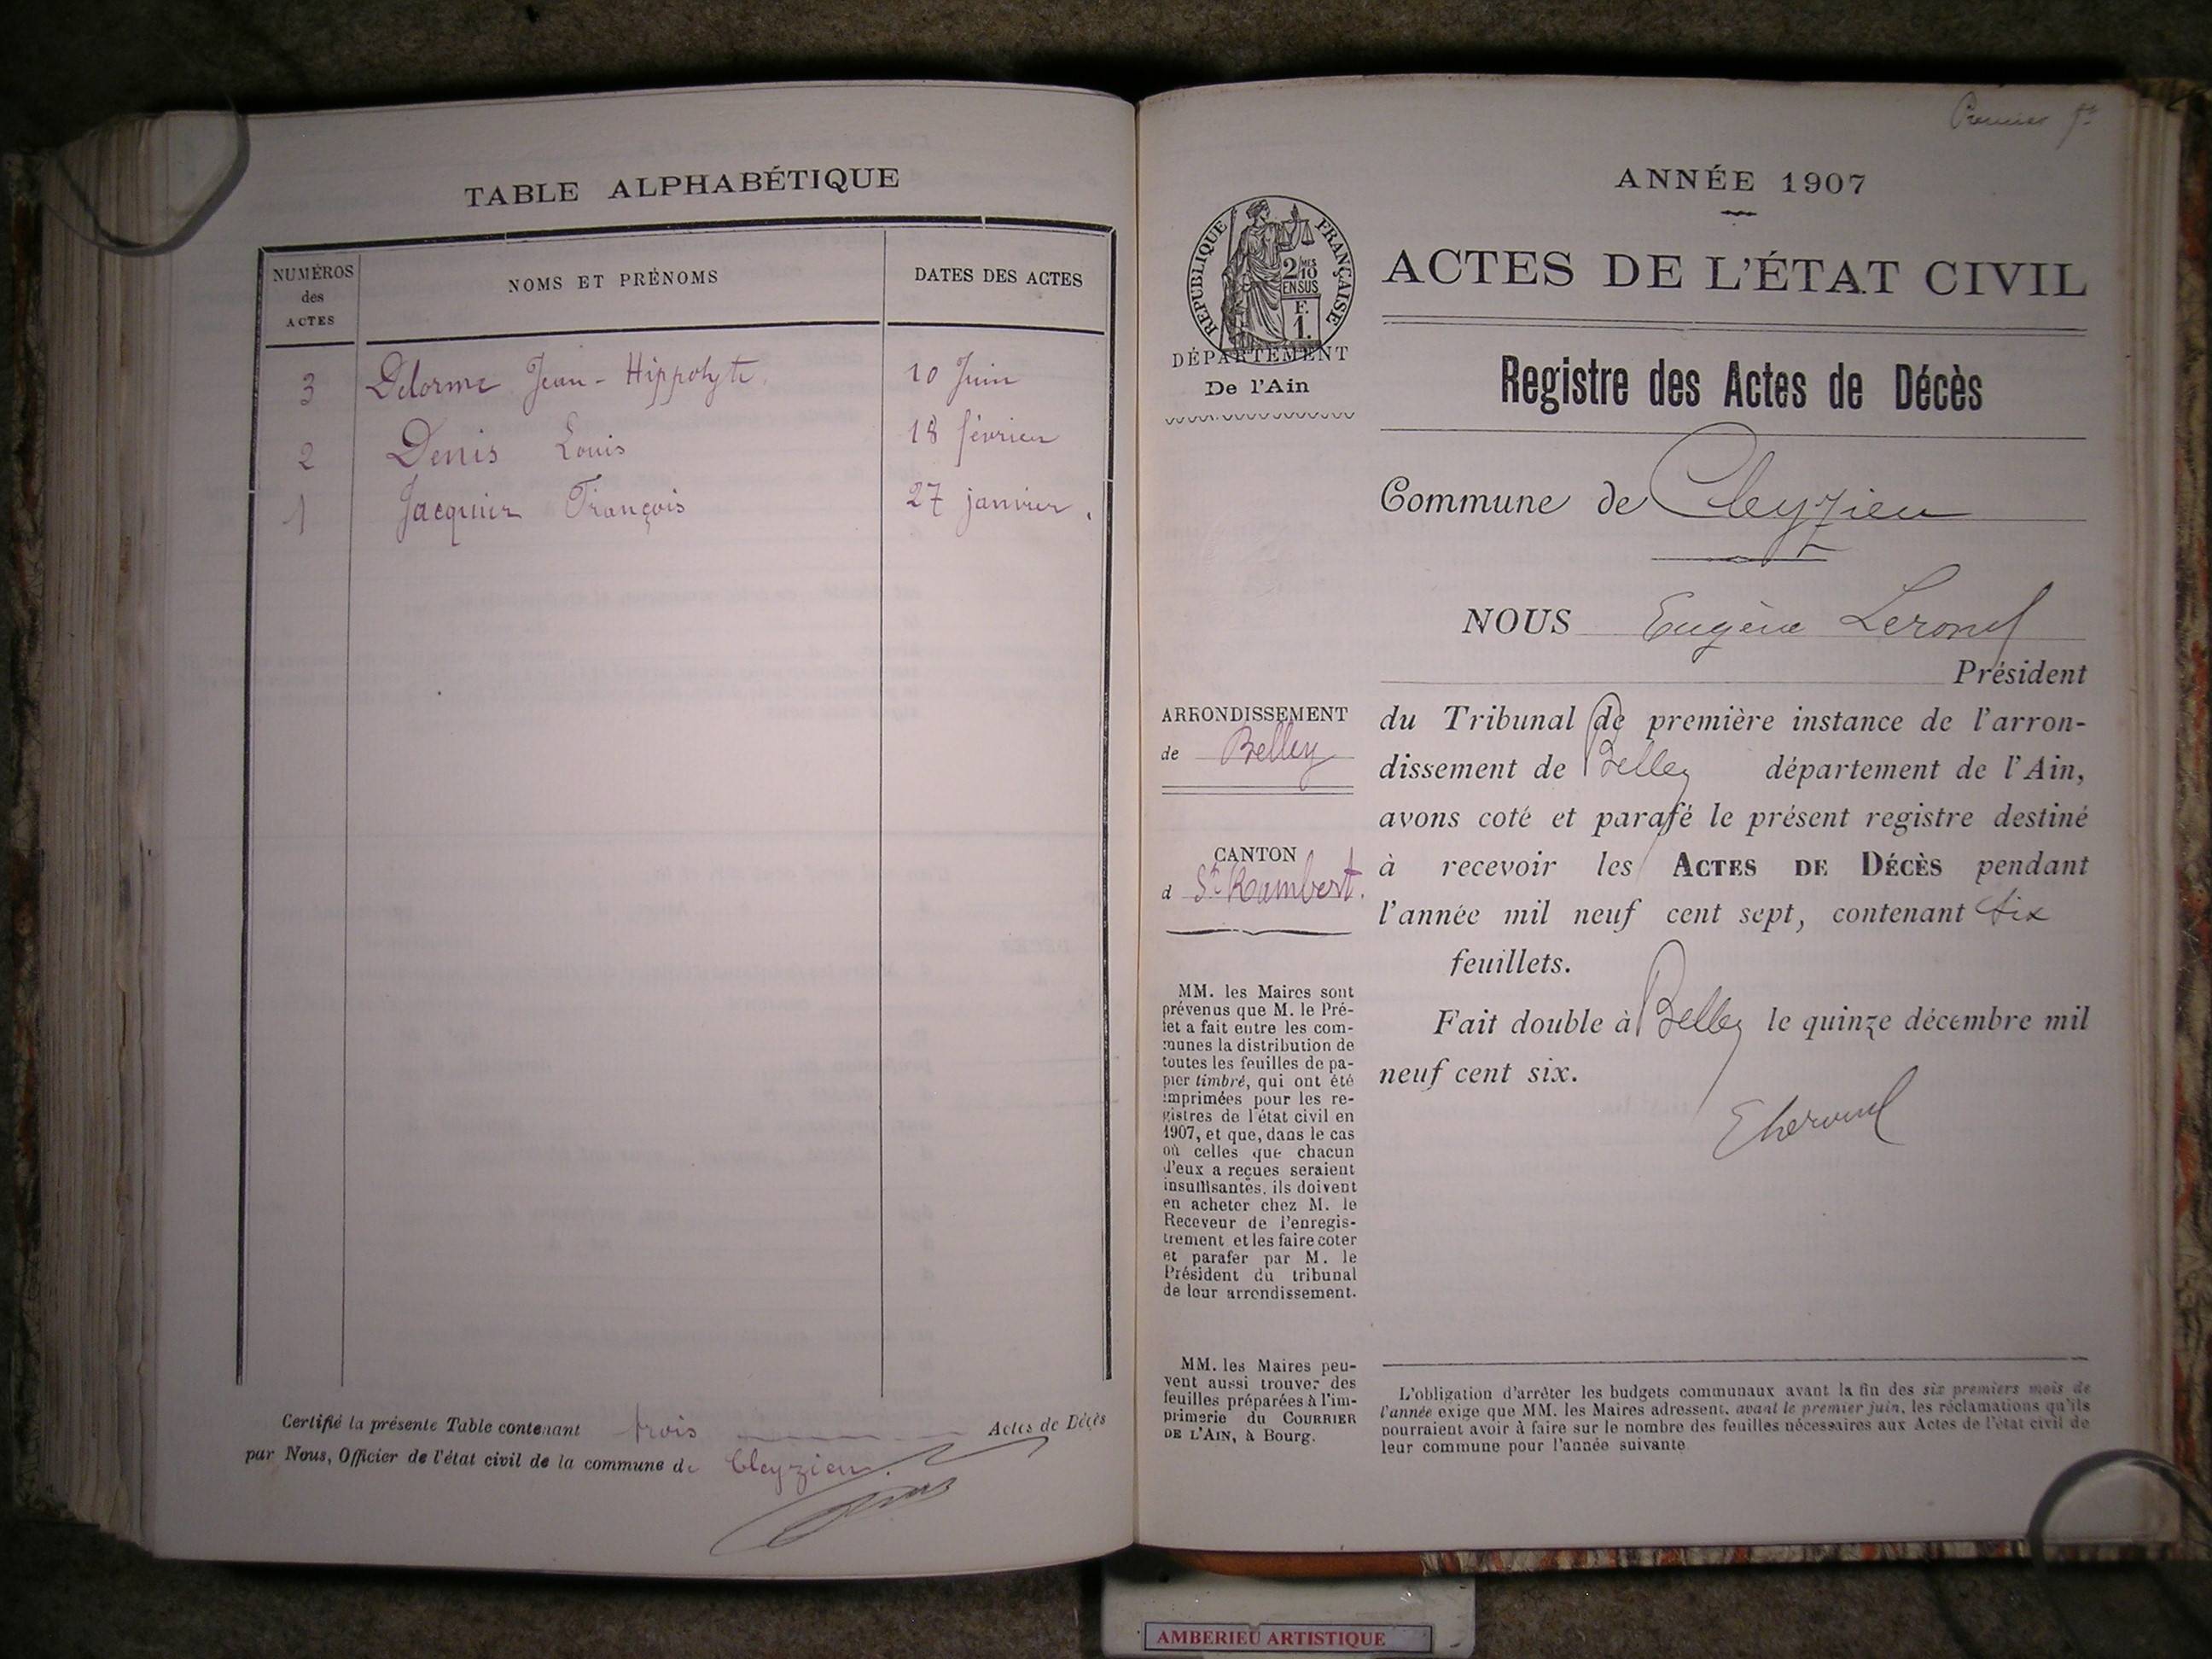 TABLE ALPHABÉTIQUE
NUMÉROS
des
ACTES
NOMS ET PRÉNOMS
DATES DES ACTES
3 Delorme Jean-Hippolyte. 10 Juin
2 Denis Louis 18 février
1 Jacquier François 27 janvier.
Certifié la présente Table contenant trois Actes de Décès
par Nous, Officier de l'état civil de la commune de Cleyzieu.
Premier
ANNÉE 1907
RÉPUBLIQUE FRANÇAISE
2/10 MES
EN SUS
F.
1.
DÉPARTEMENT
De l'Ain
ACTES DE L'ÉTAT CIVIL
Registre des Actes de Décès
Commune de Cleyzieu
NOUS Eugène
Président
du Tribunal de première instance de l'arron-
dissement de Belley département de l'Ain,
avons coté et parafé le présent registre destiné
à recevoir les ACTES DE DÉCÈS pendant
l'année mil neuf cent sept, contenant six
feuillets.
Fait double à Belley le quinze décembre mil
neuf cent six.
ARRONDISSEMENT
de Belley
CANTON
d St Rambert.
MM. les Maires sont
prévenus que M. le Pré-
fet a fait entre les com-
munes la distribution de
toutes les feuilles de pa-
pier timbré, qui ont été
imprimées pour les re-
gistres de l'état civil en
1907, et que, dans le cas
où celles que chacun
d'eux a reçues seraient
insuffisantes, ils doivent
en acheter chez M. le
Receveur de l'enregis-
trement et les faire coter
et parafer par M. le
Président du tribunal
de leur arrondissement.
MM. les Maires peu-
vent aussi trouver des
feuilles préparées à l'im-
primerie du COURRIER
DE L'AIN, à Bourg.
L'obligation d'arrêter les budgets communaux avant la fin des six premiers mois de
l'année exige que MM. les Maires adressent, avant le premier juin, les réclamations qu'ils
pourraient avoir à faire sur le nombre des feuilles nécessaires aux Actes de l'état civil de
leur commune pour l'année suivante
AMBERIEU ARTISTIQUE